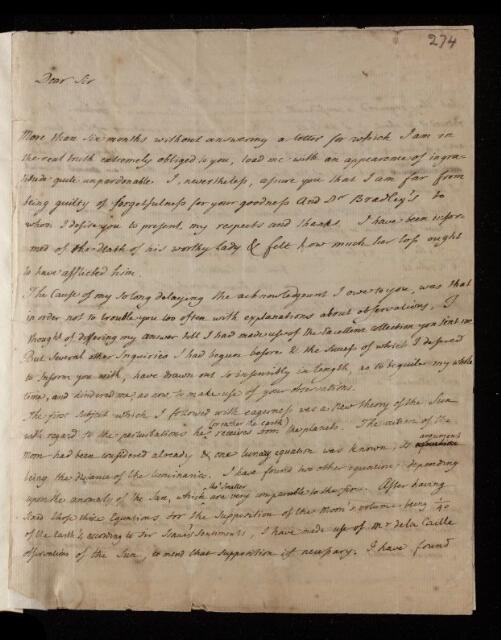 274
Dear Sir
More than six months without answering a letter for which I am in
the real truth extremely obliged to you, load me with an appearence of ingra-
titude quite unpardonable. I, nevertheless, assure you that I am far from
being guilty of forgetfulness for your goodness and Dr Bradley's to
whom I desire you to present my respects and thanks. I have been infor-
med of the death of his worthy Lady & felt how much her loss ought
to have afflicted him.
The Cause of my so long delaying the acknowledgment I owe to you, was that
in order not to trouble you too often with explanations about observations, I
thought of differing my answer till I had made use of the Excellent Collection you sent me.
But Several other Inquiries I had begun before & the success of which I desired
to inform you with, have drawn out so insensibly in length, as to beguile my whole
time, and hindered me as one to make use of your observations.
The first subject which I followed with eagerness was a New theory of the Sun
(or rather the earth)
with regard to the perturbations he receives from the planets. The action of the
Moon had been considered already & one lunary equation was known, its argument
being the distance of the luminaries. I have found two other equations depending
upon the anomaly of the Sun, which are very comparable to the first. After having
tho' smaller
fixed those three Equations for the supposition of the Moon's volume being 1/40
of the earth's according to Sir Isaac's Sentiments, I have made use of Mr de la Caille
observations of the Sun, to mend that supposition if necessary. I have found